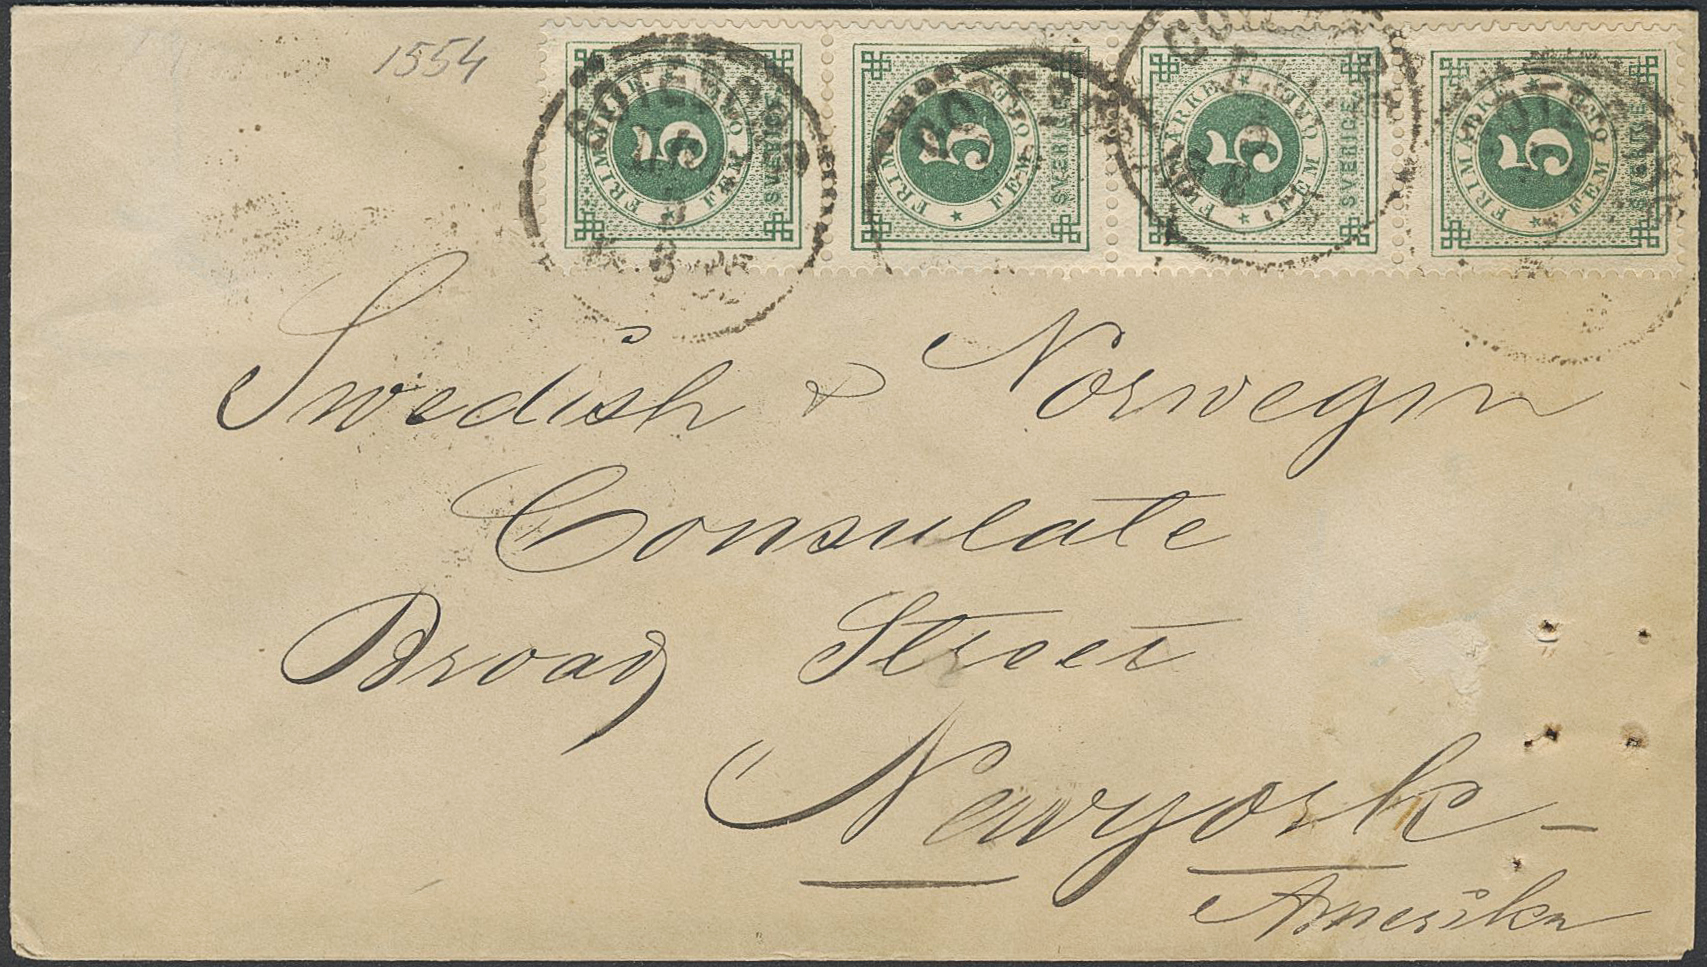 1554
SVERIGE FRIMÄRKE FEM ÖRE 5
SVERIGE FRIMÄRKE FEM ÖRE 5
SVERIGE FRIMÄRKE FEM ÖRE 5
SVERIGE FRIMÄRKE FEM ÖRE 5
GÖTEBORG
Swedish & Norwegin
Consulate
Broad Street
Newyork –
Amerika